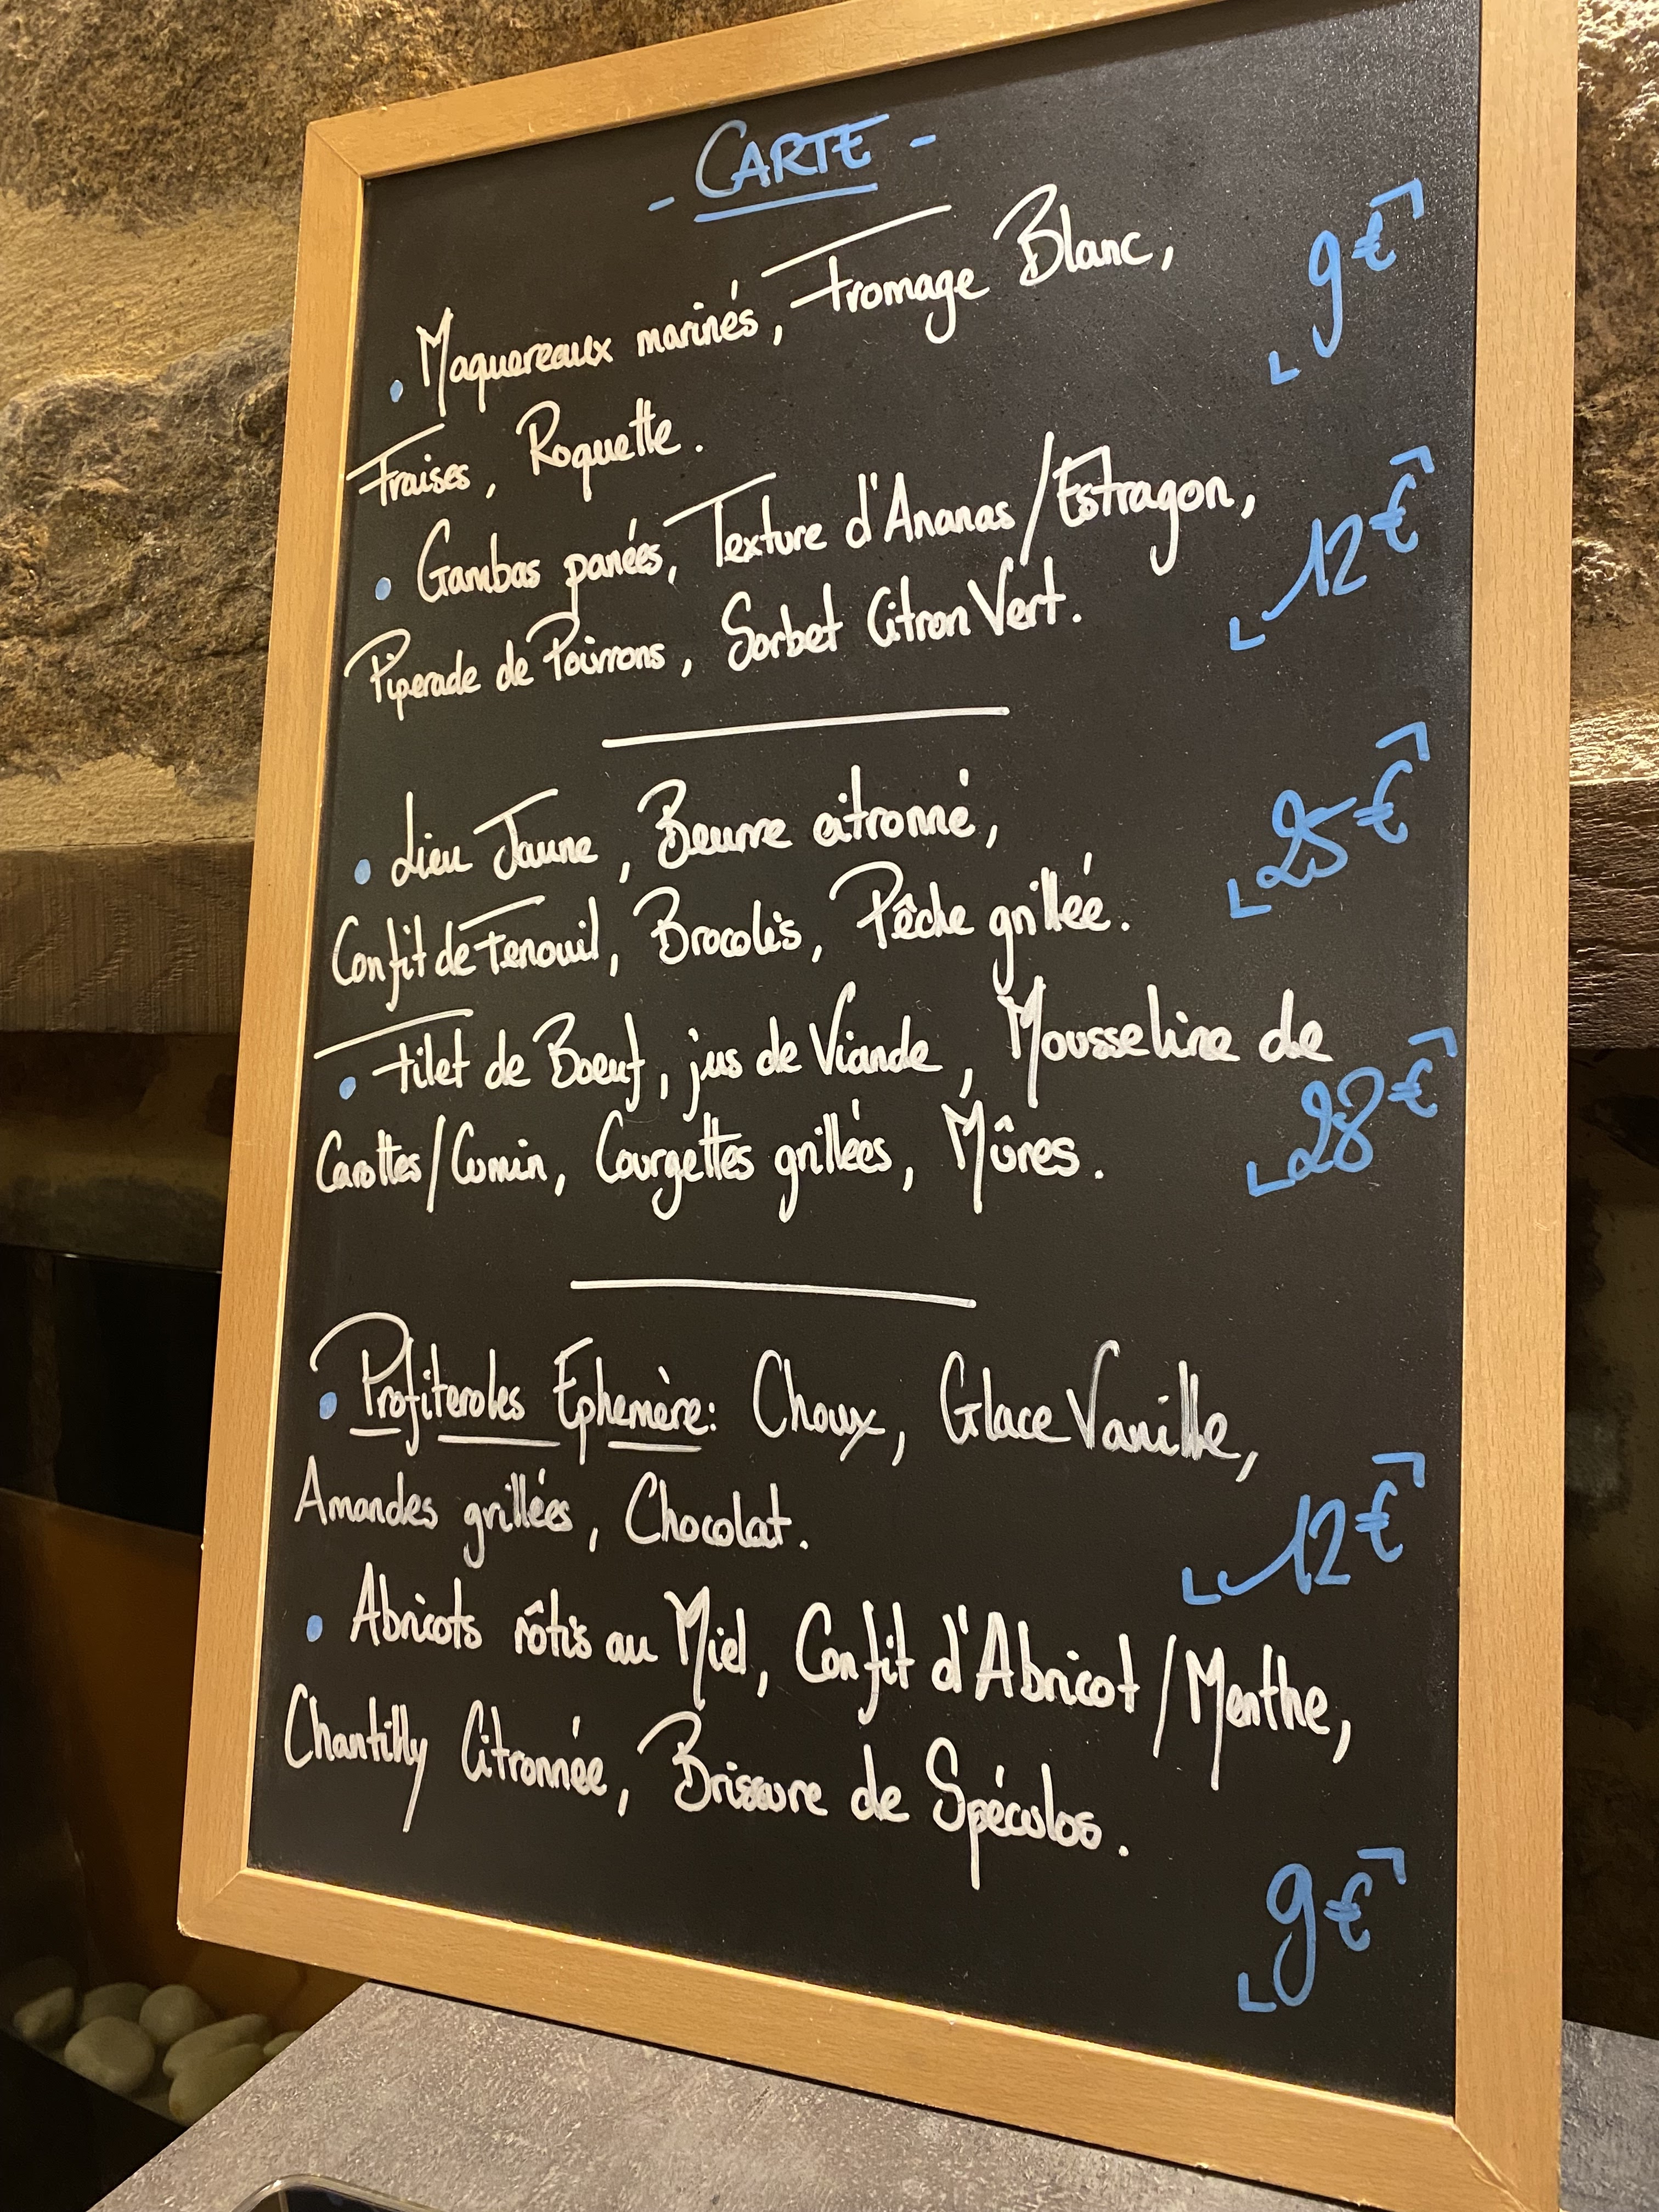 - CARTE -
• Maquereaux marinés, Fromage Blanc,
Fraises, Roquette.
9€
• Gambas panées, Texture d'Ananas/Estragon,
Piperade de Poivrons, Sorbet Citron Vert.
12€
• Lieu Jaune, Beurre citronné,
Confit de Fenouil, Brocolis, Pêche grillée.
25€
• Filet de Boeuf, jus de Viande, Mousseline de
Carottes/Cumin, Courgettes grillées, Mûres.
28€
• Profiteroles Ephemère: Choux, Glace Vanille,
Amandes grillées, Chocolat.
12€
• Abricots rôtis au Miel, Confit d'Abricot/Menthe,
Chantilly Citronnée, Brisure de Spéculos.
9€